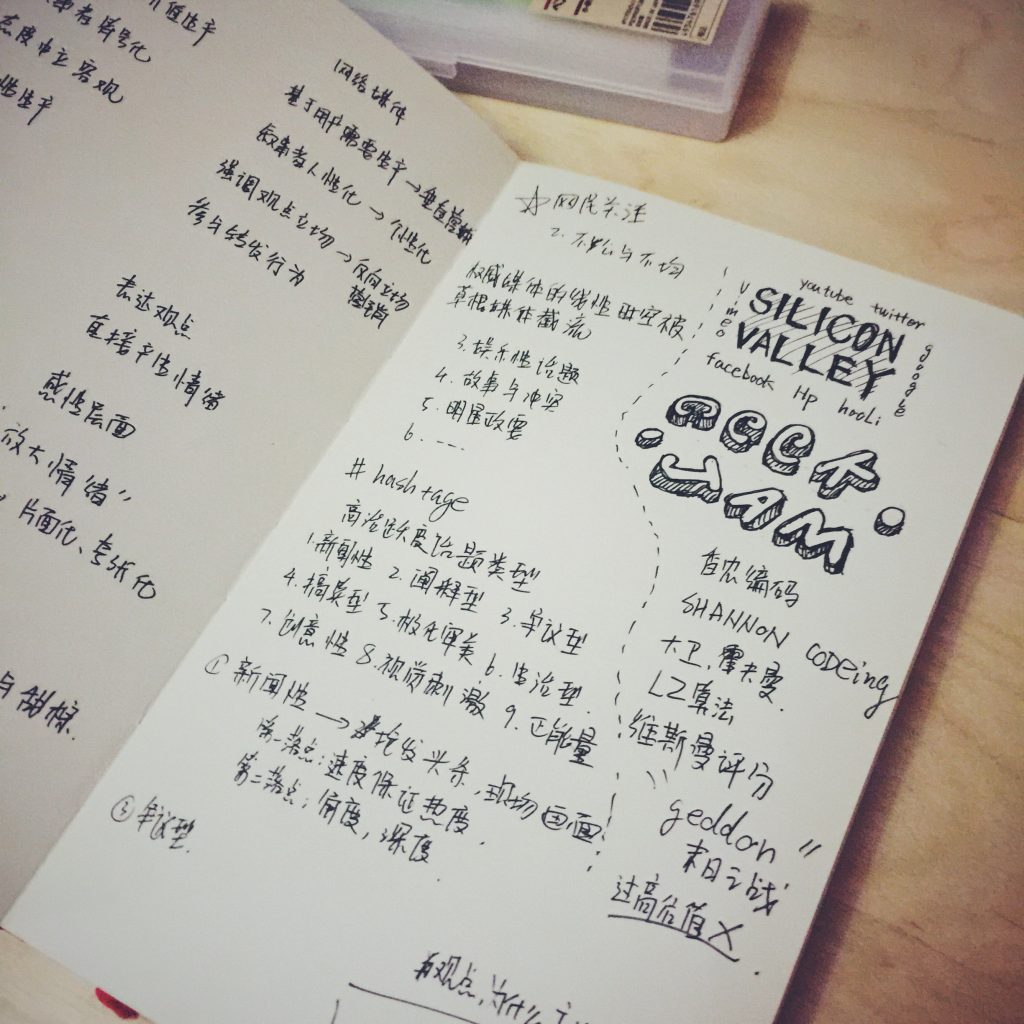 态度中立客观
性生产
网络媒体
基于用户需要生产→垂直营销
叙事者人性化→个性化
强调观点立场→反向立场
营销
参与转发行为
表达观点
直接产生情绪
感性层面
放大情绪"
片面化、夸张化
☆网民关注
2.不公与不均
权威媒体的线性时空被
草根媒体截流
3.娱乐性话题
4.故事与冲突
5.明星政要
6.----
#hashtage
高活跃度话题类型
1.新闻性 2.阐释型 3.争议型
4.搞笑型 5.极化审美 6.生活型.
7.创意性 8.视觉刺激 9.正能量
①新闻性→抢发头条,现场画面.
第一落点:速度保证热度.
第二落点:角度,深度.
③争议型.
有观点,为什么
youtube twitter
Vimeo
SILICON
VALLEY
google
facebook Hp hooLi
JAM
香农编码
SHANNON CODEing
大卫.霍夫曼.
LZ算法
维斯曼评分
"geddon"
末日之战
过高估值X.